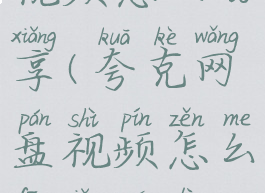 xiǎng kuā kè wǎng
享(夸克网
pán shì pín zěn me
盘视频怎么